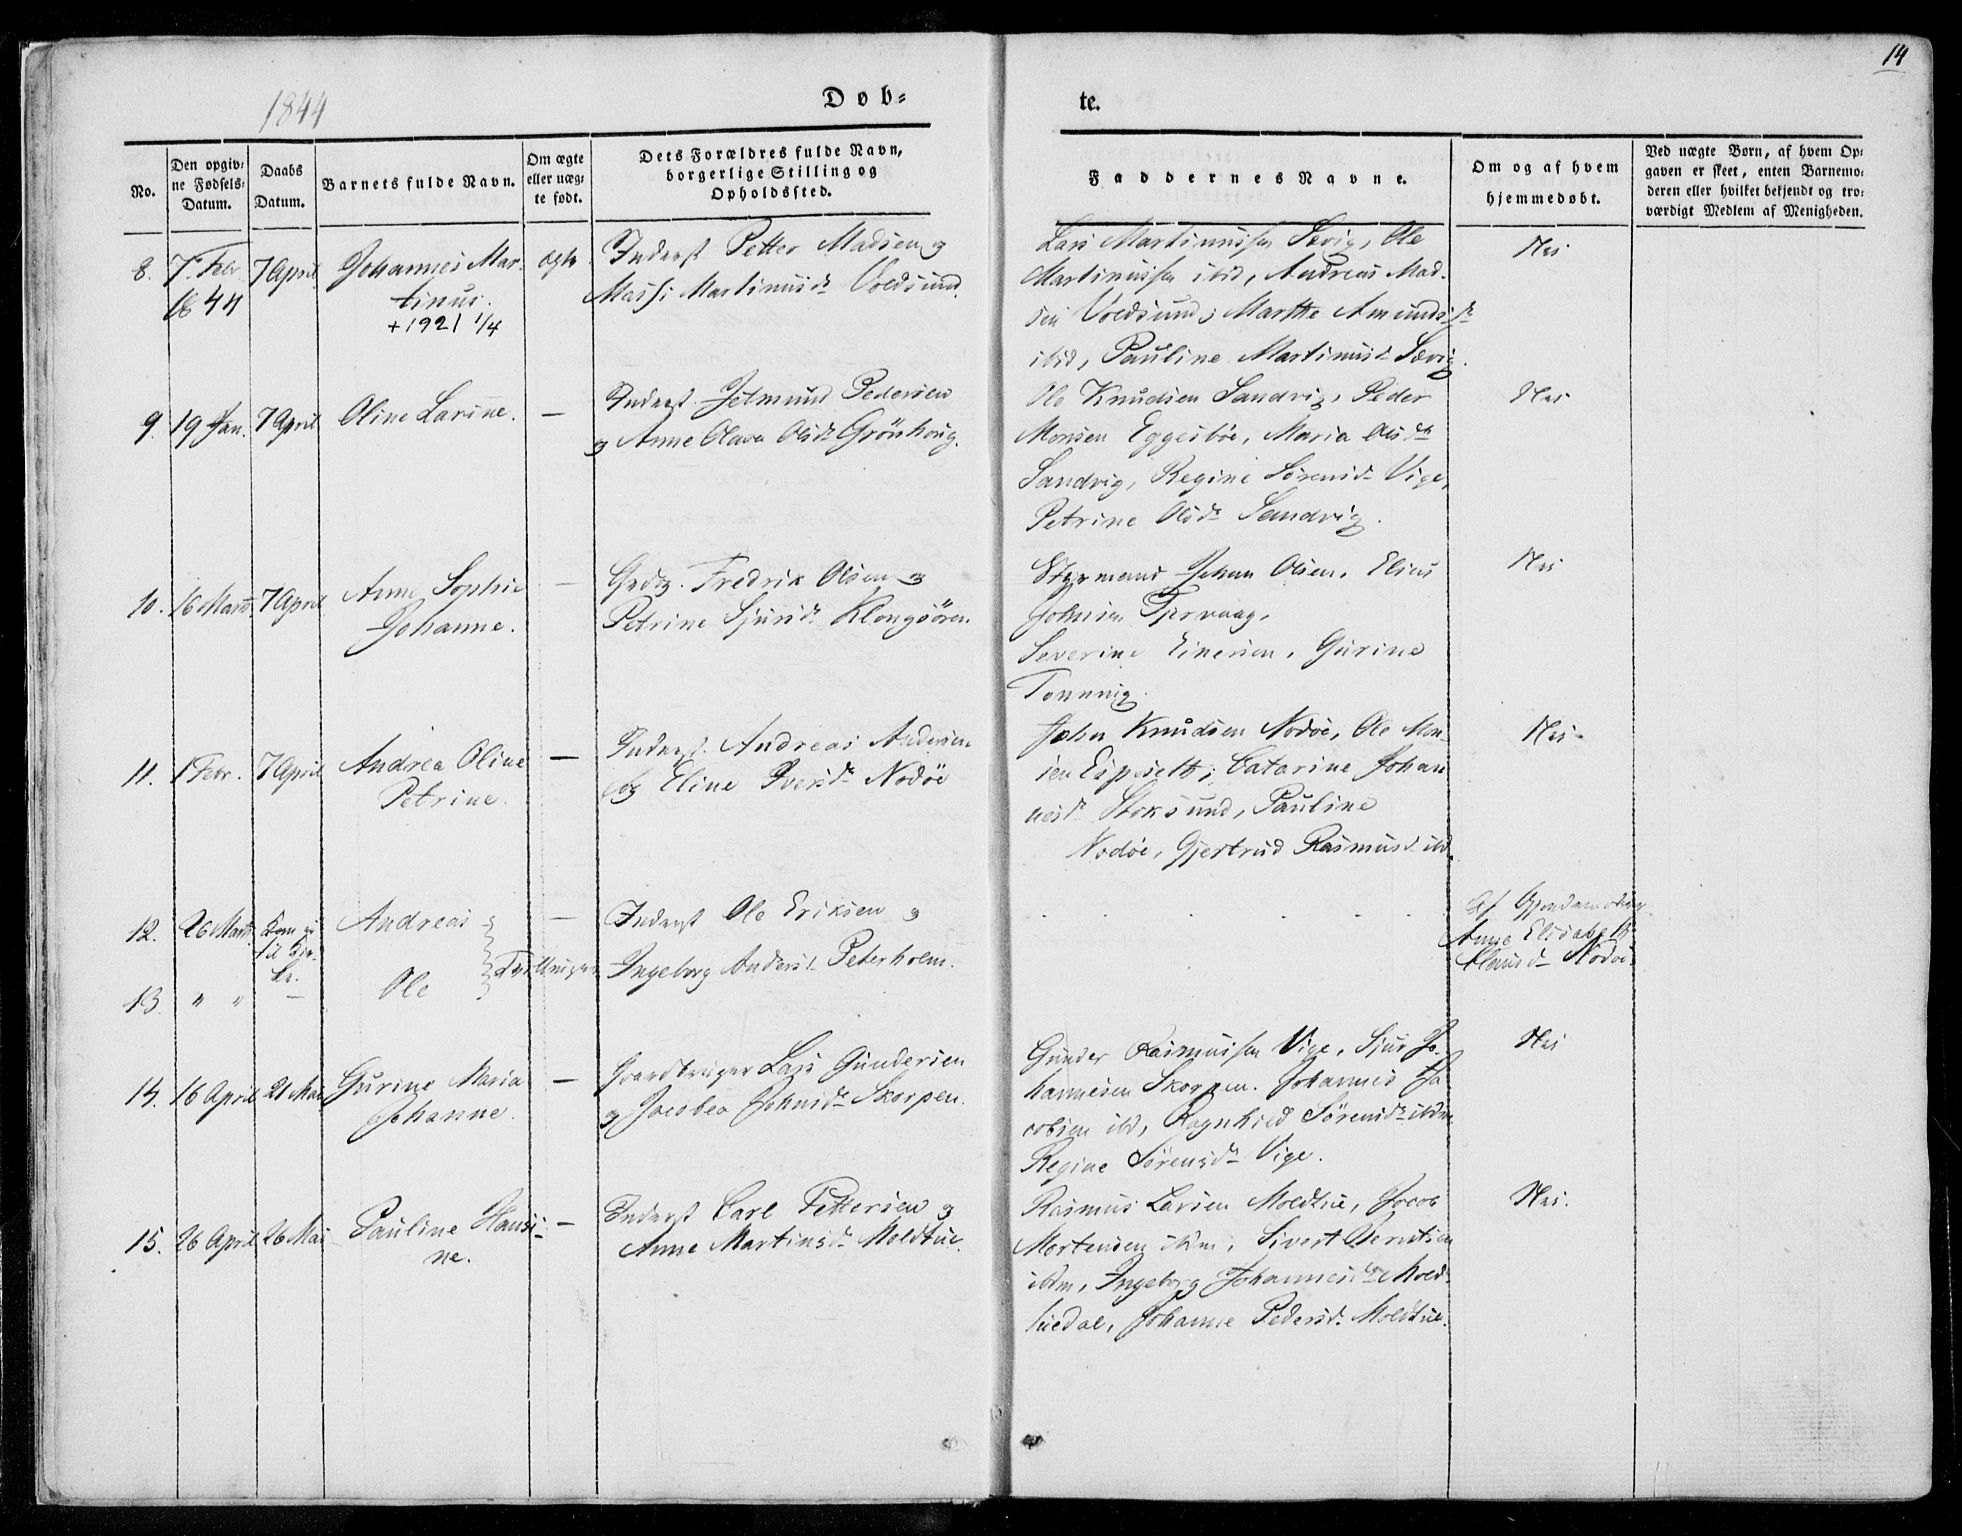 14
1844
Døb-
te.
No.
Den opgiv-
ne Fødsels-
Datum.
Daabs
Datum.
Barnets fulde Navn.
Om ægte
eller uæg-
te født.
Dets Forældres fulde Navn,
borgerlige Stilling og
Opholdssted.
Faddernes Navne.
Om og af hvem
hjemmedøbt.
Ved uægte Børn, af hvem Op-
gaven er skeet, enten Barnemo-
deren eller hvilket bekjendt og tro-
værdigt Medlem af Menigheden.
8. 7 Febr. 1844
7 April
Johannes Mar-
tinus.
+ 1921 1/4
ægte
Inderst Petter Madsen og
Martinusd. Voldsund.
Lars Martinussen Sævig, Ole
Martinussen ibid, Andreas Mad-
sen Voldsund; Marthe Amunds
ibid, Pauline Martinusd. Sævig.
Nei
9. 19 Jan. 7 April
Oline Larine.
—
Inderst Jetmund Pedersen
og Anne Olava Olsd. Grönhoug.
Ole Knudsen Sandvig, Peder
Monsen Eggesbøe, Maria Olsd.
Sandvig, Regine Sørensd. Vige,
Petrine Olsd. Sandvig.
Nei
10. 16 Marts 7 April
Anne Sophie
Johanne.
—
Fredrik Olsen og
Petrine Sjursd. Klongsören
Styrmand Johan Olsen, Elias
Johnsen Tjervaag,
Severine Einersen, Gurine
Tonning.
Nei
11. 1 Febr. 7 April
Andrea Oline
Petrine.
—
Inderst Andreas Andersen
og Eline Iversd. Nodöe
John Knudsen Nodöe, Ole Mon-
sen Espeseth; Catarine Johan-
nesd. Stoksund, Pauline
Nodöe, Gjertrud Rasmusd. ibd.
Nei.
12. 26 Marts
Kom ei
til Kir-
ke.
Andreas
Ole
Tvillinger
—
Inderst Ole Eriksen og
Ingeborg Andersd. Peterholm.
Af Gjordemoder
Anne Elisabeth
Clausd. Nodöe.
13. " " —
14. 16 April 21 Mai
Gurine Maria
Johanne.
—
Gaardbruger Lars Gundersen
og Jacobea Johnsd. Skorpen.
Gunder Rasmussen Vige, Sjur Jo-
hannesen Skorpen. Johannes Ja-
cobsen ibd, Ragnhild Sørensd. ibdm,
Regine Sørensd. Vige.
Nei
15. 26 April 26 Mai
Pauline Hansi-
ne.
—
Inderst Carl Pettersen og
Anne Martinsd. Moldtue.
Rasmus Larsen Moldtue, Jacob
Mortensen ibdm, Sivert Berntsen
ibdm, Ingeborg Johannesd. Mold-
tuedal, Johanne Pedersd. Moldtue.
Nei.